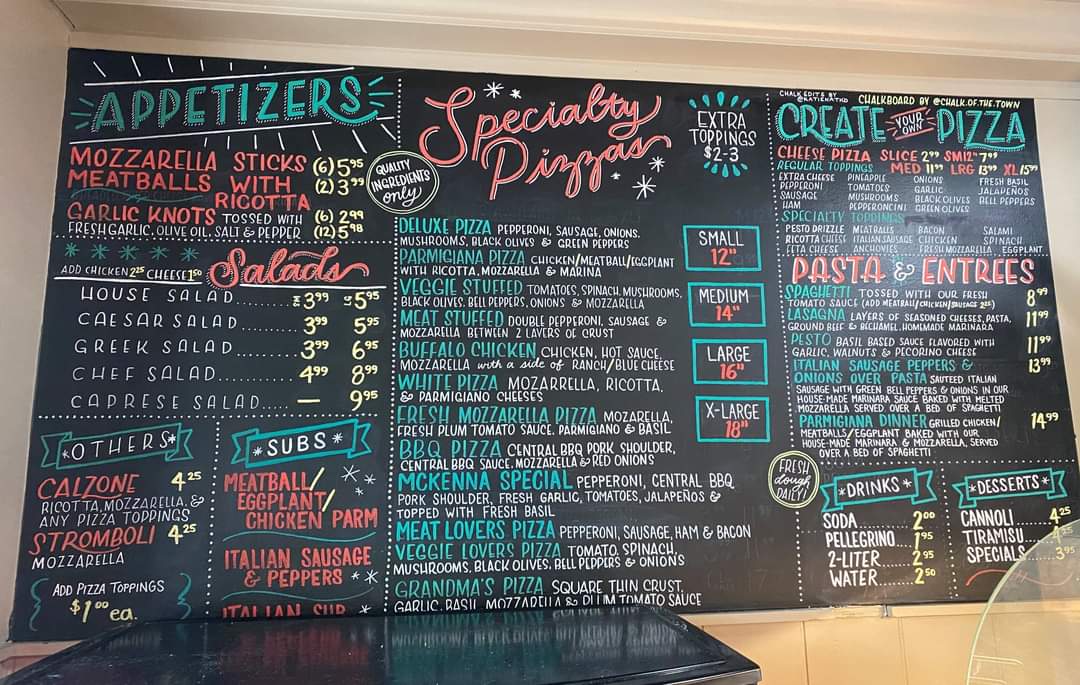 APPETIZERS
MOZZARELLA STICKS (6) 5.95
MEATBALLS WITH (2) 3.99
RICOTTA
GARLIC KNOTS TOSSED WITH (6) 2.99
FRESH GARLIC, OLIVE OIL, SALT & PEPPER (12) 5.98
QUALITY
INGREDIENTS
only
ADD CHICKEN 2.25 CHEESE 1.50
Salads
HOUSE SALAD 3.99 5.95
CAESAR SALAD 3.99 5.95
GREEK SALAD 3.99 6.95
CHEF SALAD 4.99 8.99
CAPRESE SALAD — 9.95
*OTHERS*
CALZONE 4.25
RICOTTA, MOZZARELLA, &
ANY PIZZA TOPPINGS
STROMBOLI 4.25
MOZZARELLA
ADD PIZZA TOPPINGS
$1.00 ea.
*SUBS*
MEATBALL/
EGGPLANT/
CHICKEN PARM
ITALIAN SAUSAGE
& PEPPERS
ITALIAN SUB
Specialty
Pizzas
EXTRA
TOPPINGS
$2-3
DELUXE PIZZA PEPPERONI, SAUSAGE, ONIONS,
MUSHROOMS, BLACK OLIVES & GREEN PEPPERS
PARMIGIANA PIZZA CHICKEN/MEATBALL/EGGPLANT
WITH RICOTTA, MOZZARELLA & MARINA
VEGGIE STUFFED TOMATOES, SPINACH, MUSHROOMS,
BLACK OLIVES, BELL PEPPERS, ONIONS & MOZZARELLA
MEAT STUFFED DOUBLE PEPPERONI, SAUSAGE &
MOZZARELLA BETWEEN 2 LAYERS OF CRUST
BUFFALO CHICKEN CHICKEN, HOT SAUCE,
MOZZARELLA with a side of RANCH/BLUE CHEESE
WHITE PIZZA MOZARRELLA, RICOTTA,
& PARMIGIANO CHEESES
FRESH MOZZARELLA PIZZA MOZARELLA,
FRESH PLUM TOMATO SAUCE, PARMIGIANO & BASIL
BBQ PIZZA CENTRAL BBQ PORK SHOULDER,
CENTRAL BBQ SAUCE, MOZZARELLA & RED ONIONS
MCKENNA SPECIAL PEPPERONI, CENTRAL BBQ
PORK SHOULDER, FRESH GARLIC, TOMATOES, JALAPEÑOS &
TOPPED WITH FRESH BASIL
MEAT LOVERS PIZZA PEPPERONI, SAUSAGE, HAM & BACON
VEGGIE LOVERS PIZZA TOMATO, SPINACH,
MUSHROOMS, BLACK OLIVES, BELL PEPPERS & ONIONS
GRANDMA'S PIZZA SQUARE THIN CRUST,
GARLIC, BASIL, MOZZARELLA & PLUM TOMATO SAUCE
SMALL
12"
MEDIUM
14"
LARGE
16"
X-LARGE
18"
CHALK EDITS BY
@KATIEHATKD
CHALKBOARD BY @CHALK.OF.THE.TOWN
CREATE YOUR OWN PIZZA
CHEESE PIZZA SLICE 2.99 SM 12" 7.99
REGULAR TOPPINGS MED 11.99 LRG 13.99 XL 15.99
EXTRA CHEESE PINEAPPLE ONIONS FRESH BASIL
PEPPERONI TOMATOES GARLIC JALAPEÑOS
SAUSAGE MUSHROOMS BLACK OLIVES BELL PEPPERS
HAM PEPPERONCINI GREEN OLIVES
SPECIALTY TOPPINGS
PESTO DRIZZLE MEATBALLS BACON SALAMI
RICOTTA CHEESE ITALIAN SAUSAGE CHICKEN SPINACH
FETA CHEESE ANCHOVIES FRESH MOZZARELLA EGGPLANT
PASTA & ENTREES
SPAGHETTI TOSSED WITH OUR FRESH 8.99
TOMATO SAUCE (ADD MEATBALL/CHICKEN/SAUSAGE 2.25)
LASAGNA LAYERS OF SEASONED CHEESES, PASTA, 11.99
GROUND BEEF & BECHAMEL, HOMEMADE MARINARA
PESTO BASIL BASED SAUCE FLAVORED WITH 11.99
GARLIC, WALNUTS & PECORINO CHEESE
ITALIAN SAUSAGE PEPPERS & 13.99
ONIONS OVER PASTA SAUTEED ITALIAN
SAUSAGE WITH GREEN BELL PEPPERS & ONIONS IN OUR
HOUSE-MADE MARINARA SAUCE BAKED WITH MELTED
MOZZARELLA SERVED OVER A BED OF SPAGHETTI
PARMIGIANA DINNER GRILLED CHICKEN/ 14.99
MEATBALLS/EGGPLANT BAKED WITH OUR
HOUSE-MADE MARINARA & MOZZARELLA, SERVED
OVER A BED OF SPAGHETTI
FRESH
dough
DAILY!
*DRINKS*
SODA 2.00
PELLEGRINO 1.95
2-LITER 2.95
WATER 2.50
*DESSERTS*
CANNOLI 4.25
TIRAMISU
SPECIALS 3.95